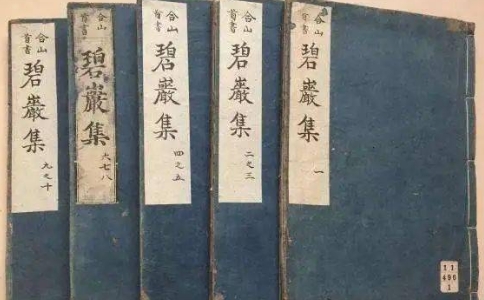 合山
首書
碧巖集
一
合山
首書
碧巖集
二之三
合山
首書
碧巖集
四之五
合山
首書
碧巖集
六七八
合山
首書
碧巖集
九之十
11
490
1